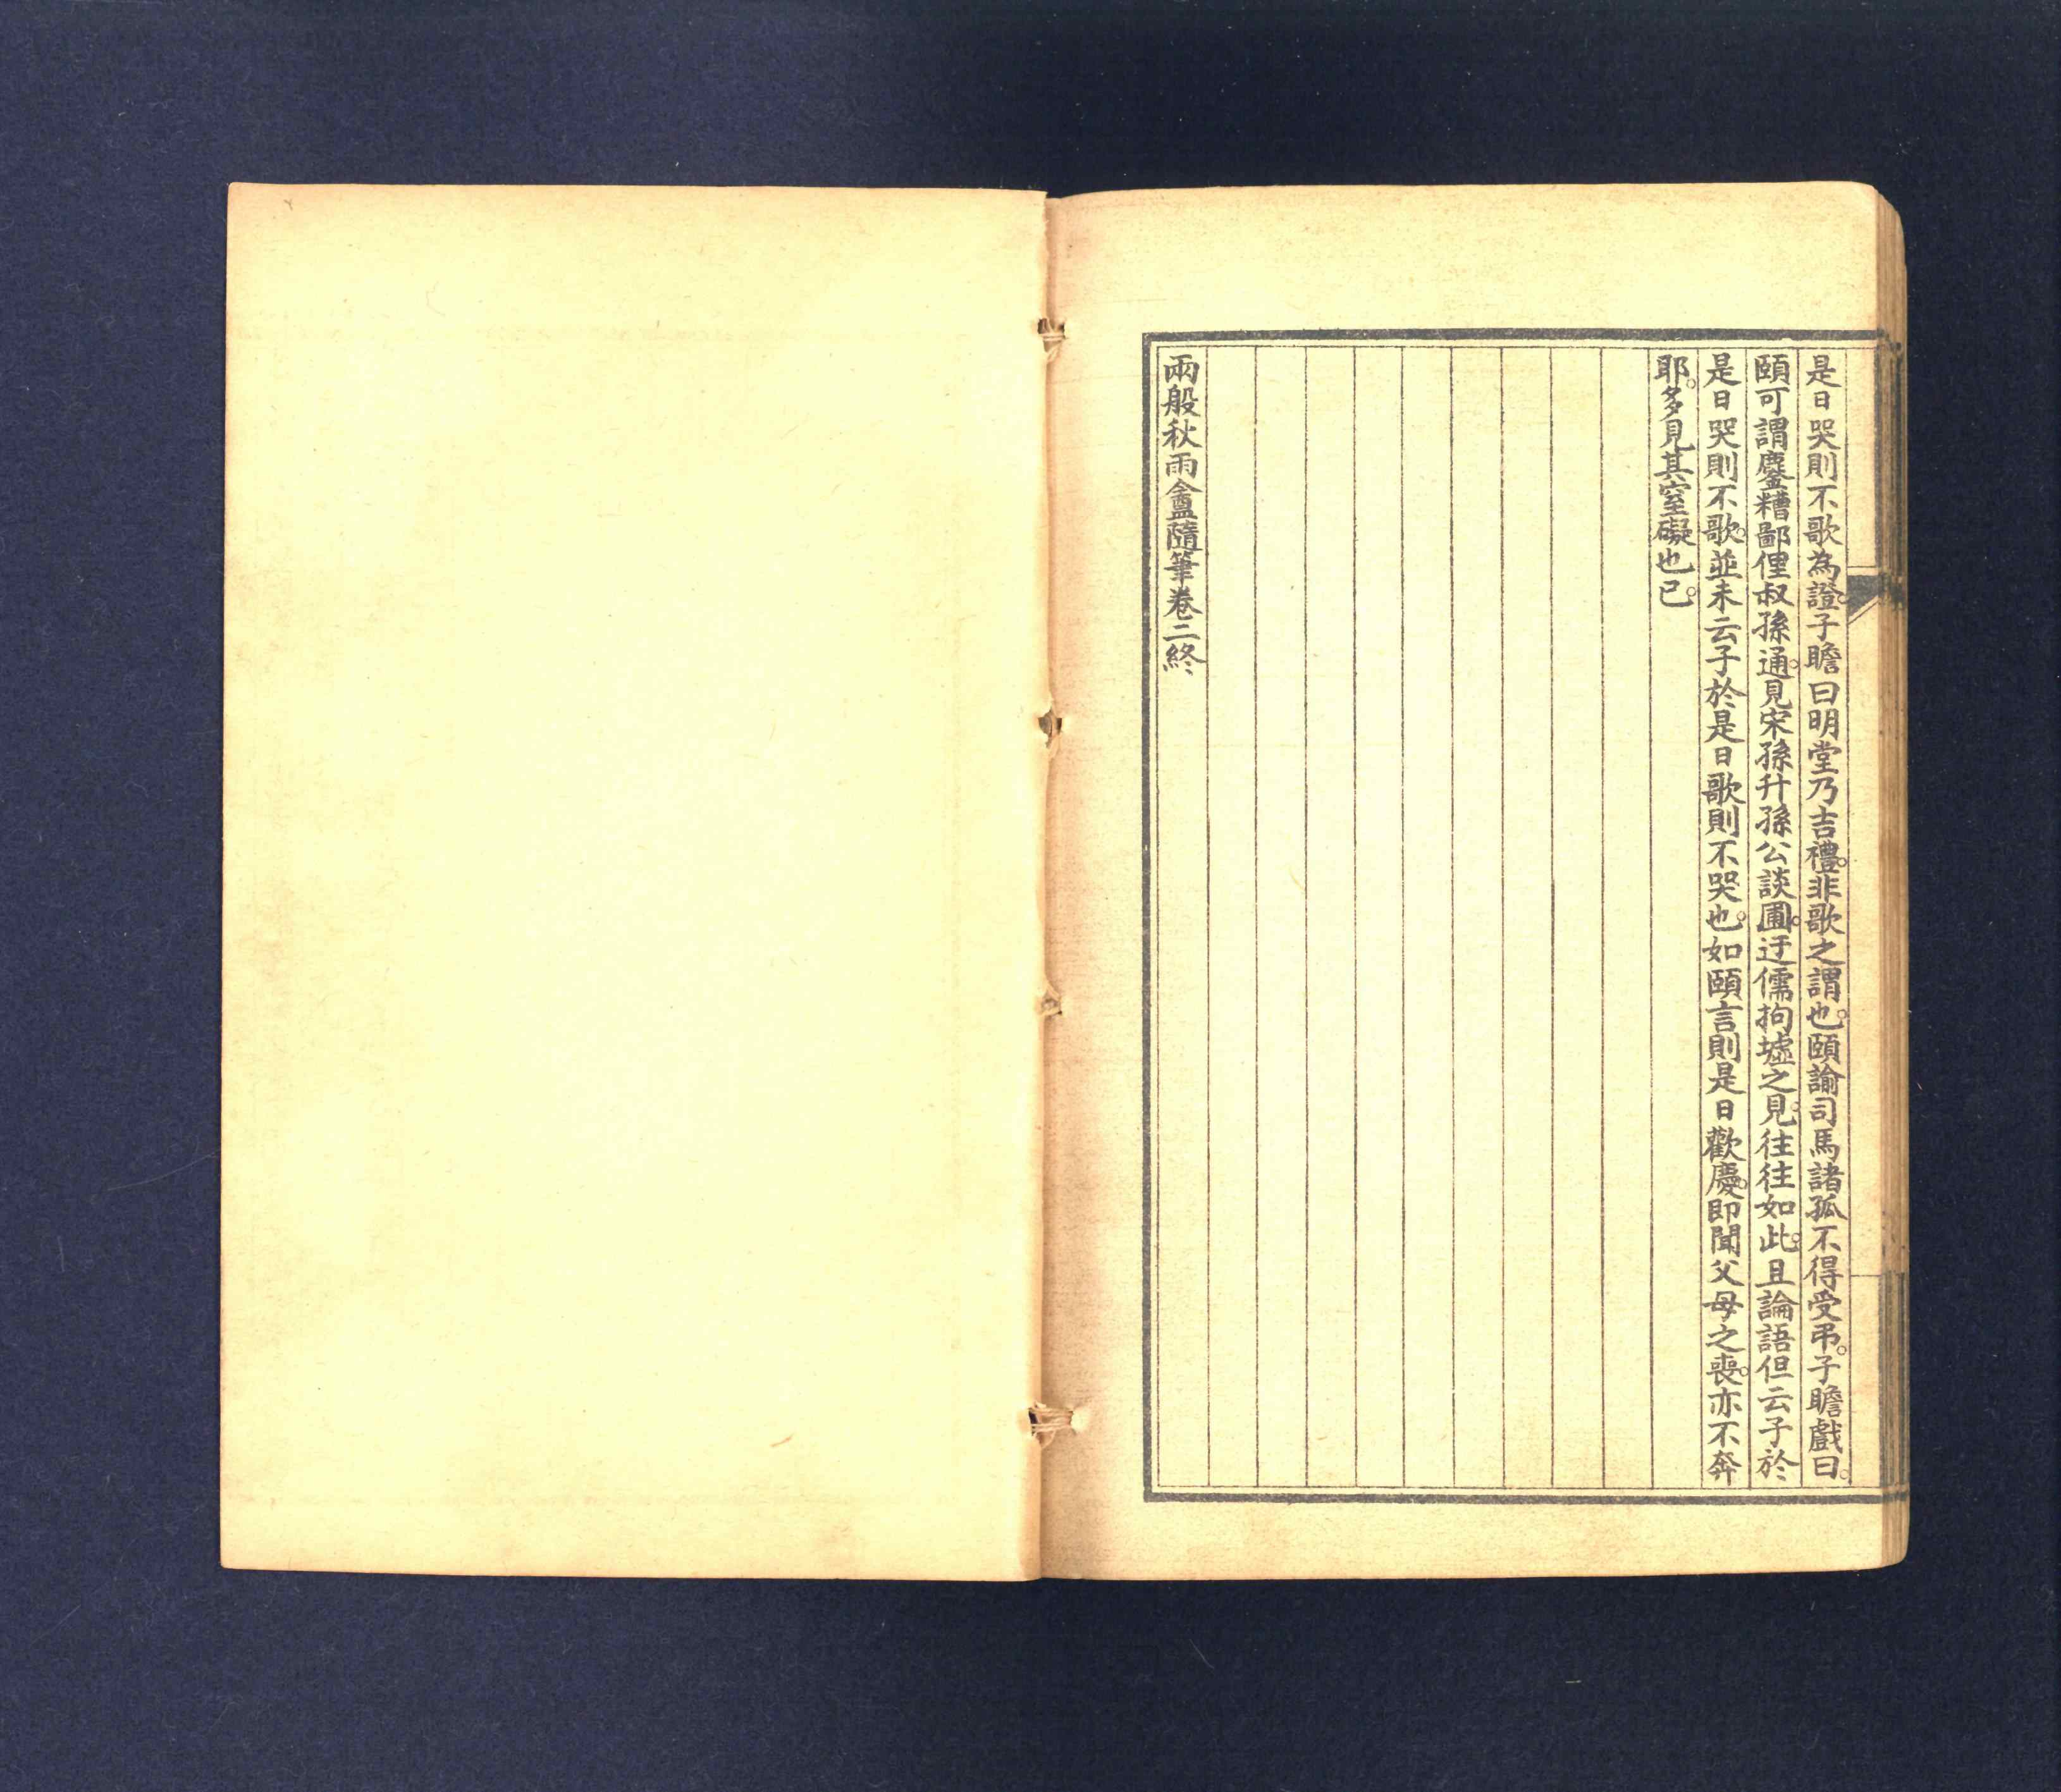 是日哭則不歌為證。子瞻曰明堂乃吉禮。非歌之謂也。頤諭司馬諸孤不得受弔。子瞻戲曰。
頤可謂鏖糟鄙俚叔孫通。見宋孫升孫公談圃。迂儒拘墟之見。往往如此。且論語但云子於
是日哭則不歌。並未云子於是日歌則不哭也。如頤言則是日歡慶。即聞父母之喪。亦不奔
耶。多見其窒礙也已。
兩般秋雨盦隨筆卷二終